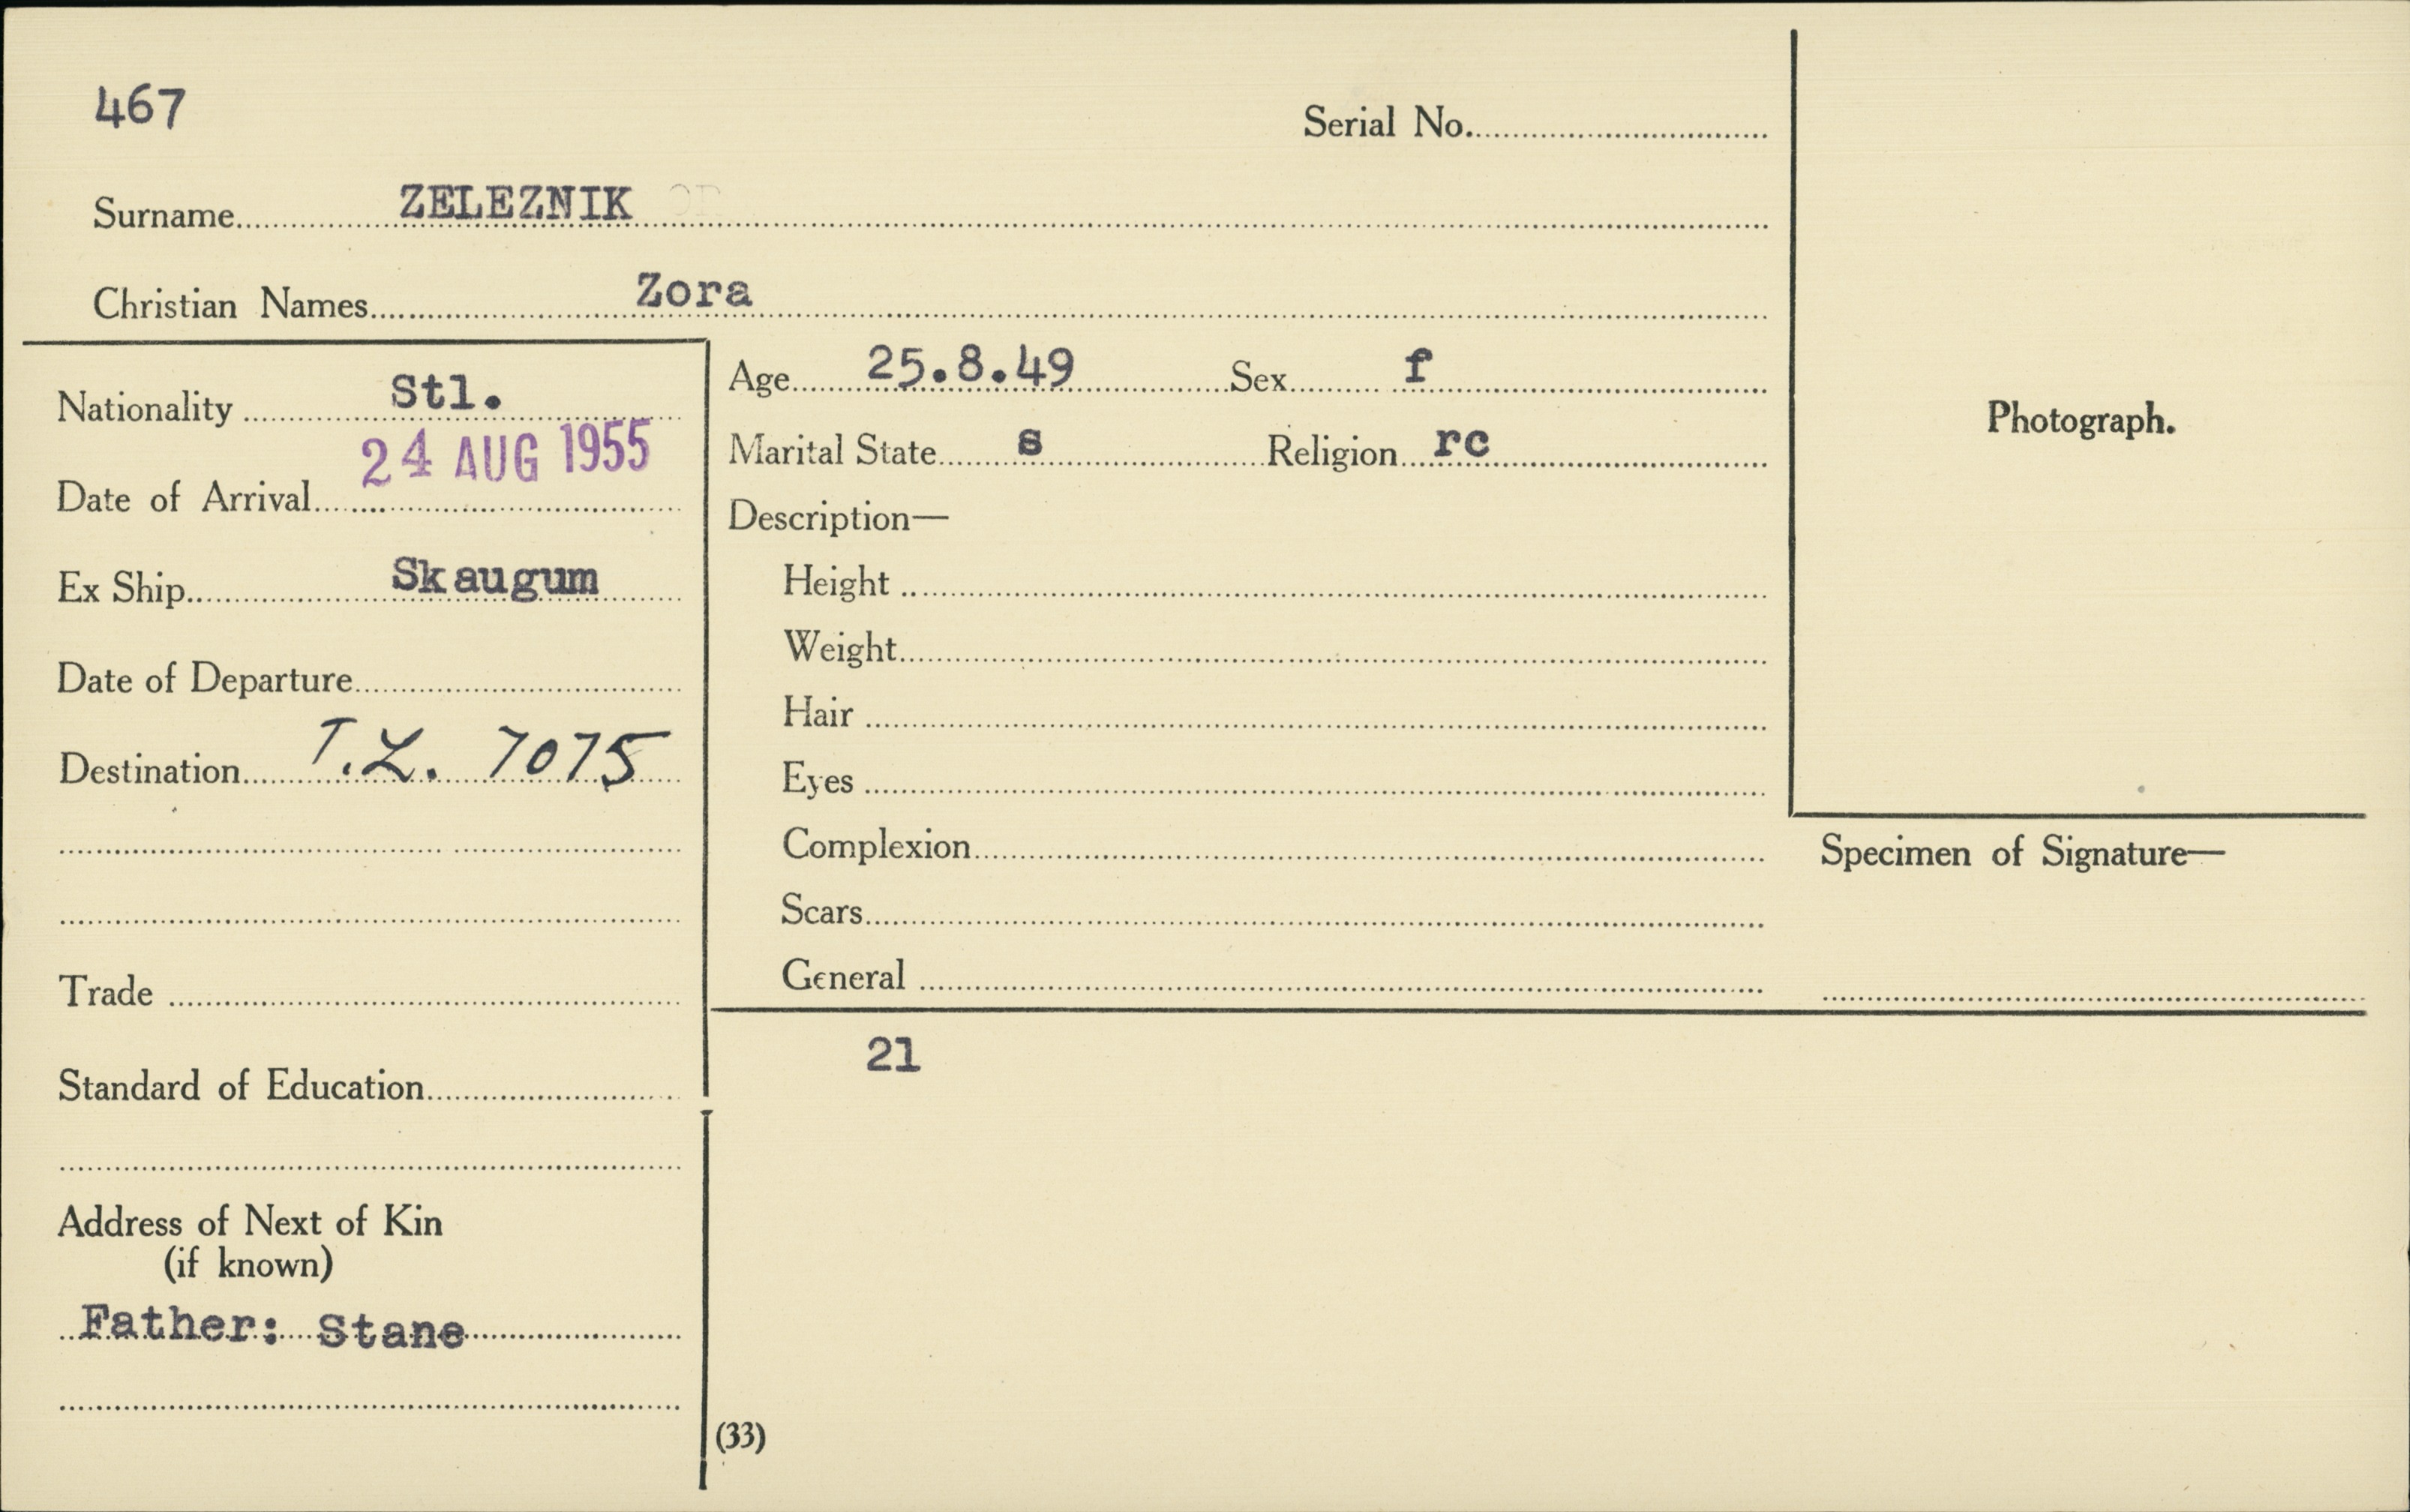 467
Serial No.
Surname ZELEZNIK
Christian Names Zora
Nationality Stl.
Date of Arrival 24 AUG 1955
Ex Ship Skaugum
Date of Departure
Destination T.L. 7075
Trade
Standard of Education
Address of Next of Kin
(if known)
Father: Stane
Age 25.8.49 Sex f
Marital State s Religion rc
Description—
Height
Weight
Hair
Eyes
Complexion
Scars
General
Photograph.
Specimen of Signature—
21
(33)